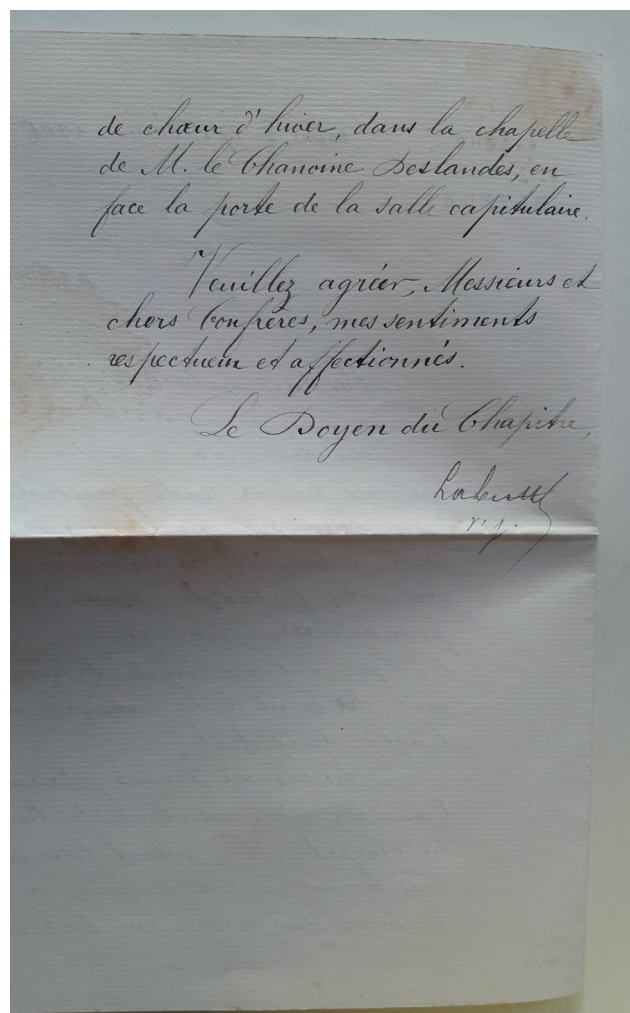 de chœur d'hiver, dans la chapelle
de M. le Chanoine Deslandes, en
face la porte de la salle capitulaire.
Veuillez agréer, Messieurs et
chers Confrères, mes sentiments
respectueux et affectionnés.
Le Doyen du Chapitre,